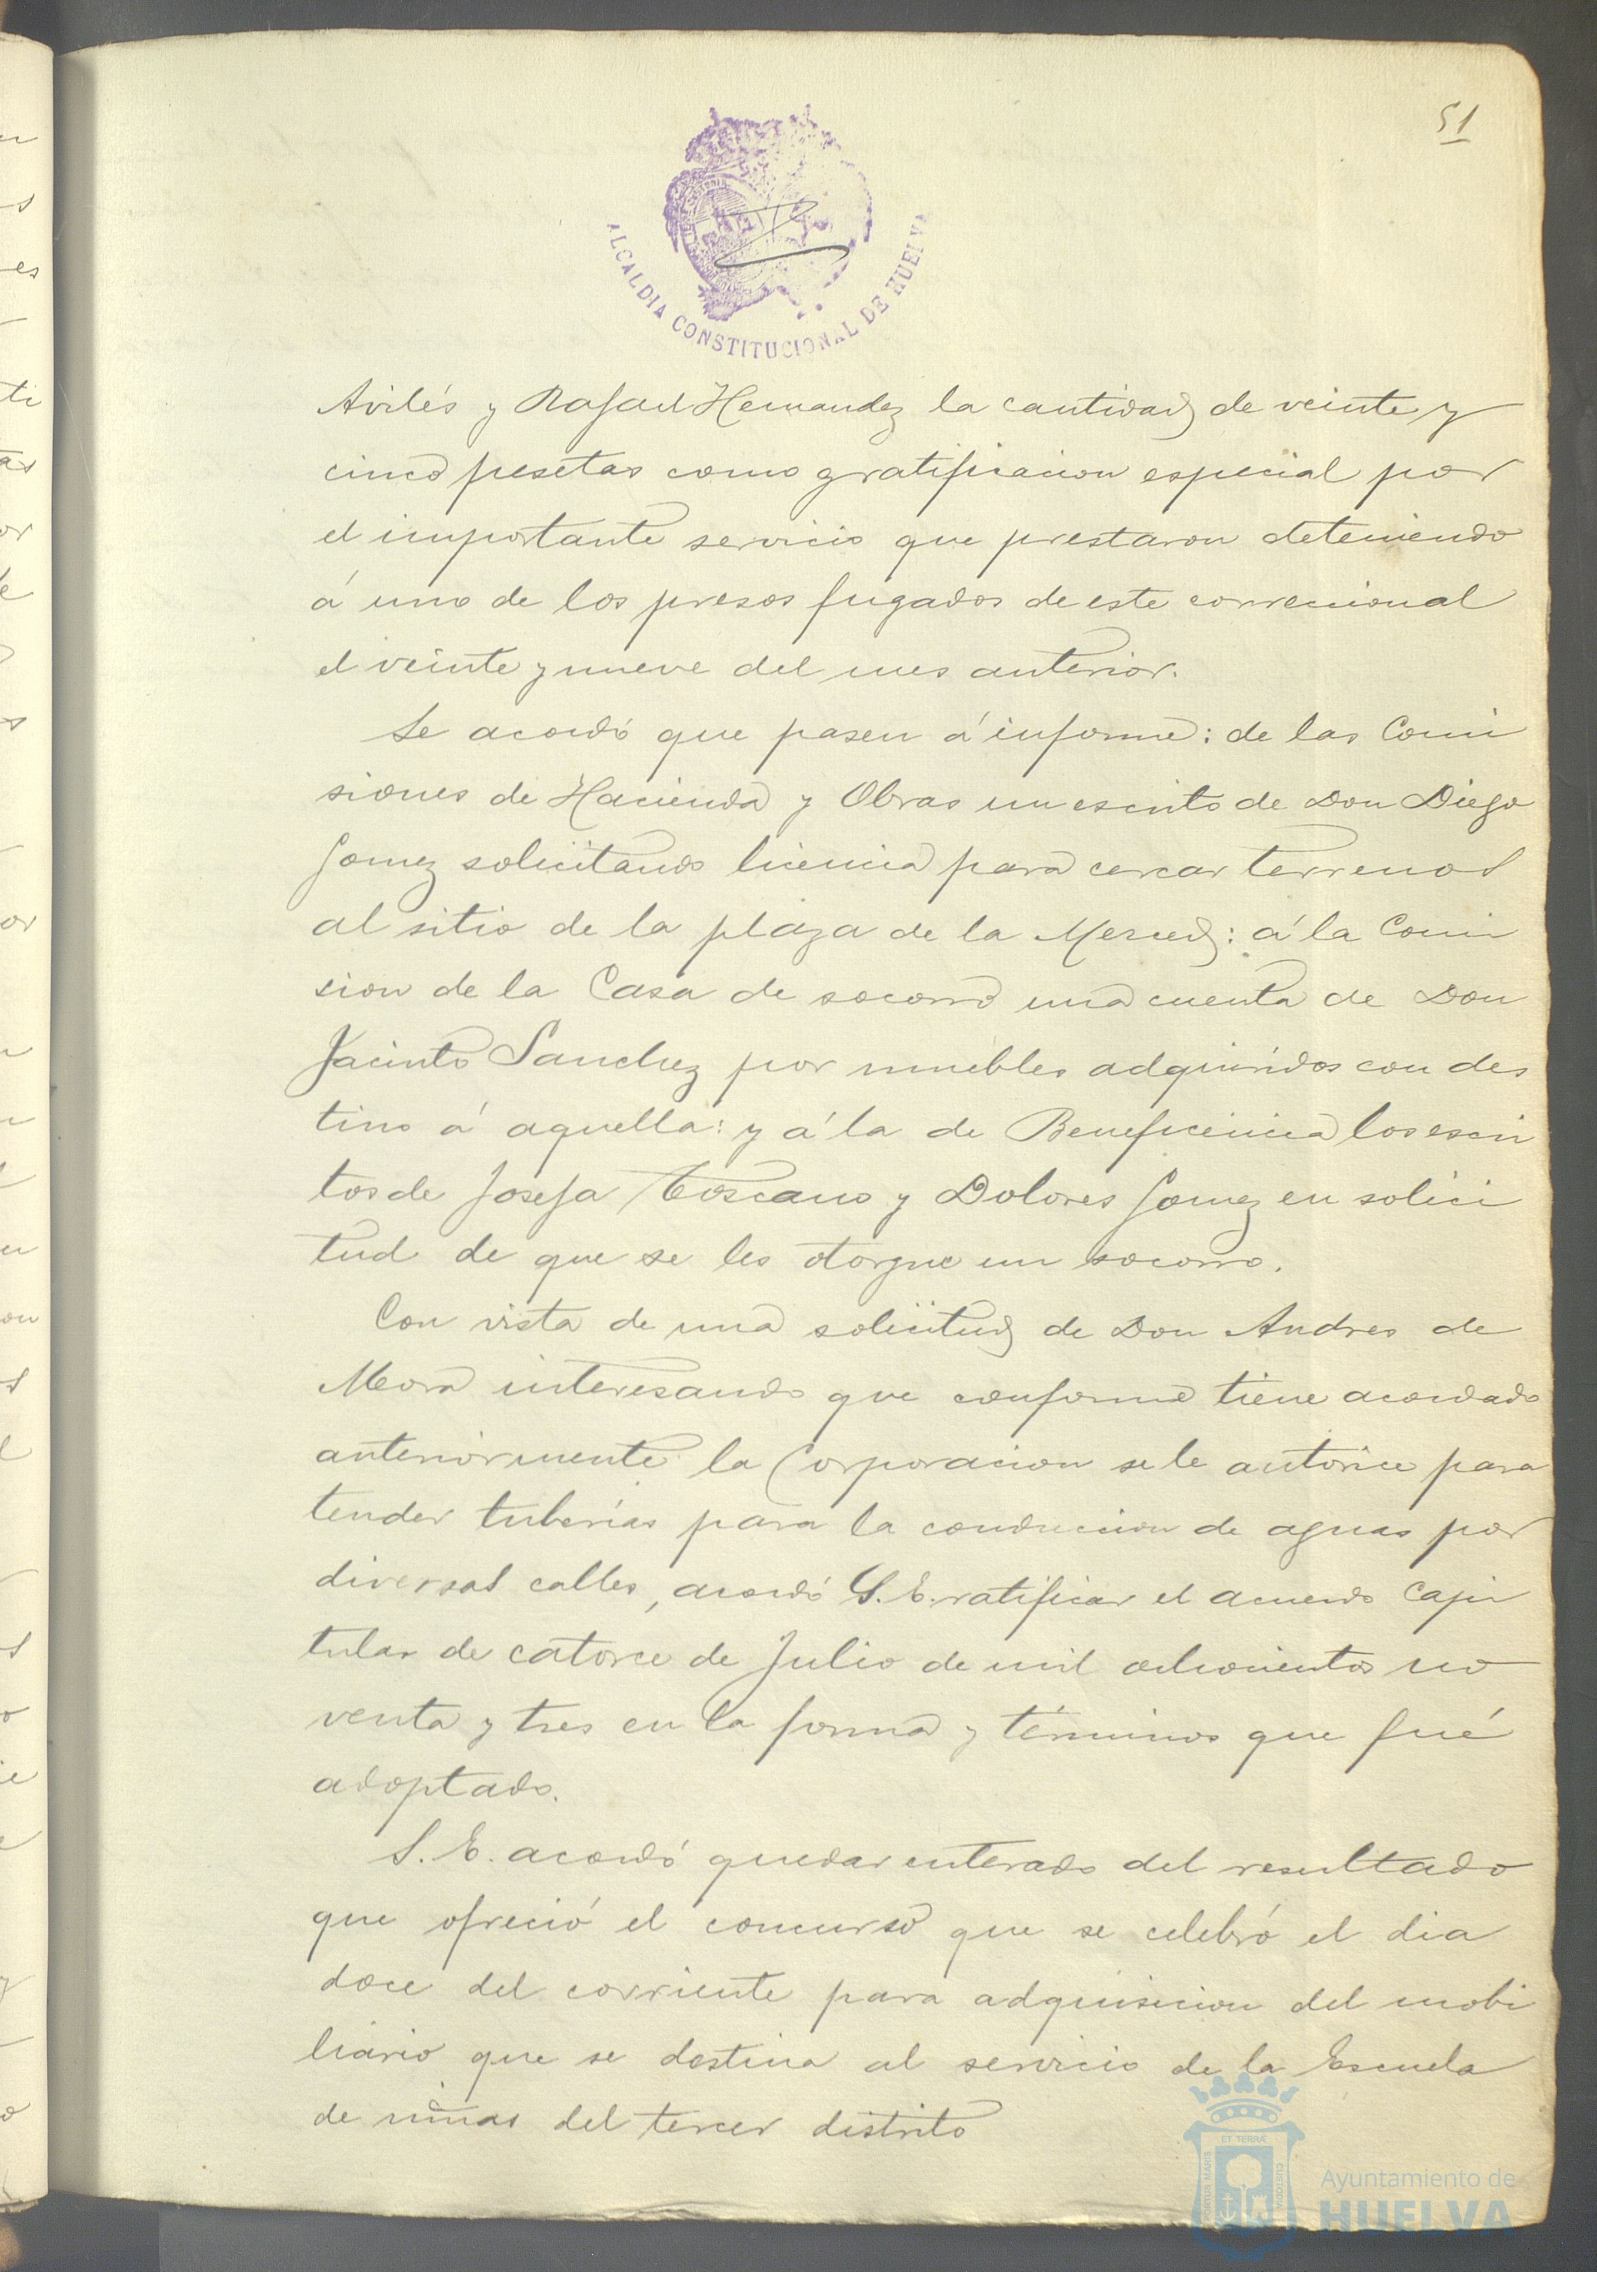 51
ALCALDIA CONSTITUCIONAL DE HUELVA
Avilés y Rafael Hernandez la cantidad de veinte y
cinco pesetas como gratificacion especial por
el importante servicio que prestaron deteniendo
á uno de los presos fugados de este correccional
el veinte y nueve del mes anterior.
Se acordó que pasen á informe: de las Comi
siones de Hacienda y Obras un escrito de Don Diego
Gomez solicitando licencia para cercar terrenos
al sitio de la plaza de la Merced: á la Comi
sion de la Casa de socorro una cuenta de Don
Jacinto Sanchez por muebles adquiridos con des
tino á aquella: y á la de Beneficencia los escri
tos de Josefa Toscano y Dolores Gomez en solici
tud de que se les otorgue un socorro.
Con vista de una solicitud de Don Andres de
Mora interesando que conforme tiene acordado
anteriormente la Corporacion se le autorice para
tender tuberías para la conduccion de aguas por
diversas calles, acordó S. E. ratificar el acuerdo capi
tular de catorce de Julio de mil ochocientos no
venta y tres en la forma y términos que fué
adoptado.
S. E. acordó quedar enterado del resultado
que ofreció el concurso que se celebró el dia
doce del corriente para adquisicion del mobi
liario que se destina al servicio de la Escuela
de niñas del tercer distrito
PORTUS MARIS ET TERRÆ CUSTODIA
Ayuntamiento de
HUELVA